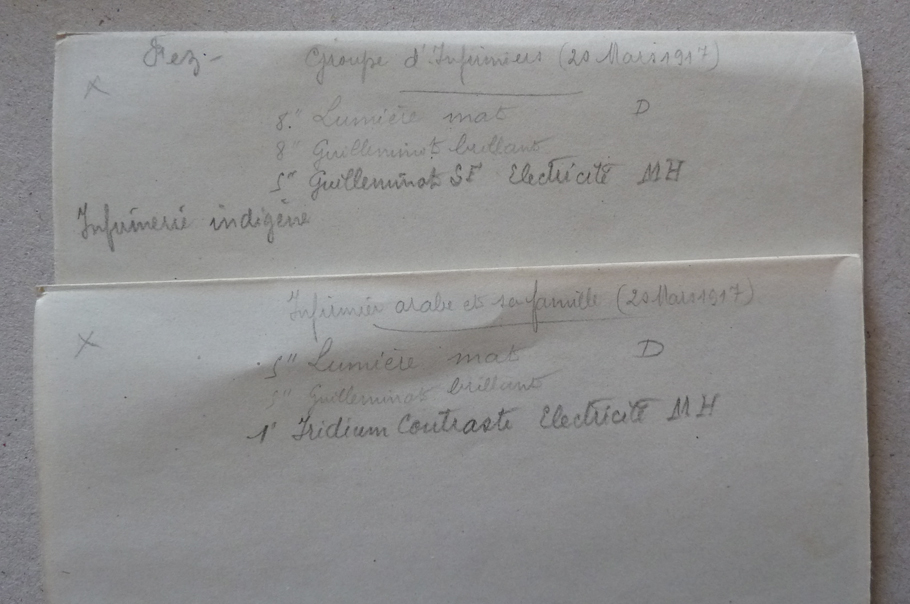 Fez - Groupe d'Infirmiers (20 Mars 1917)
X
8" Lumière mat D
8" Guilleminot brillant
5" Guilleminot SE Electricité MH
Infirmerie indigène
Infirmier arabe et sa famille (20 Mars 1917)
X
5" Lumière mat D
5" Guilleminot brillant
1' Iridium Contraste Electricité MH